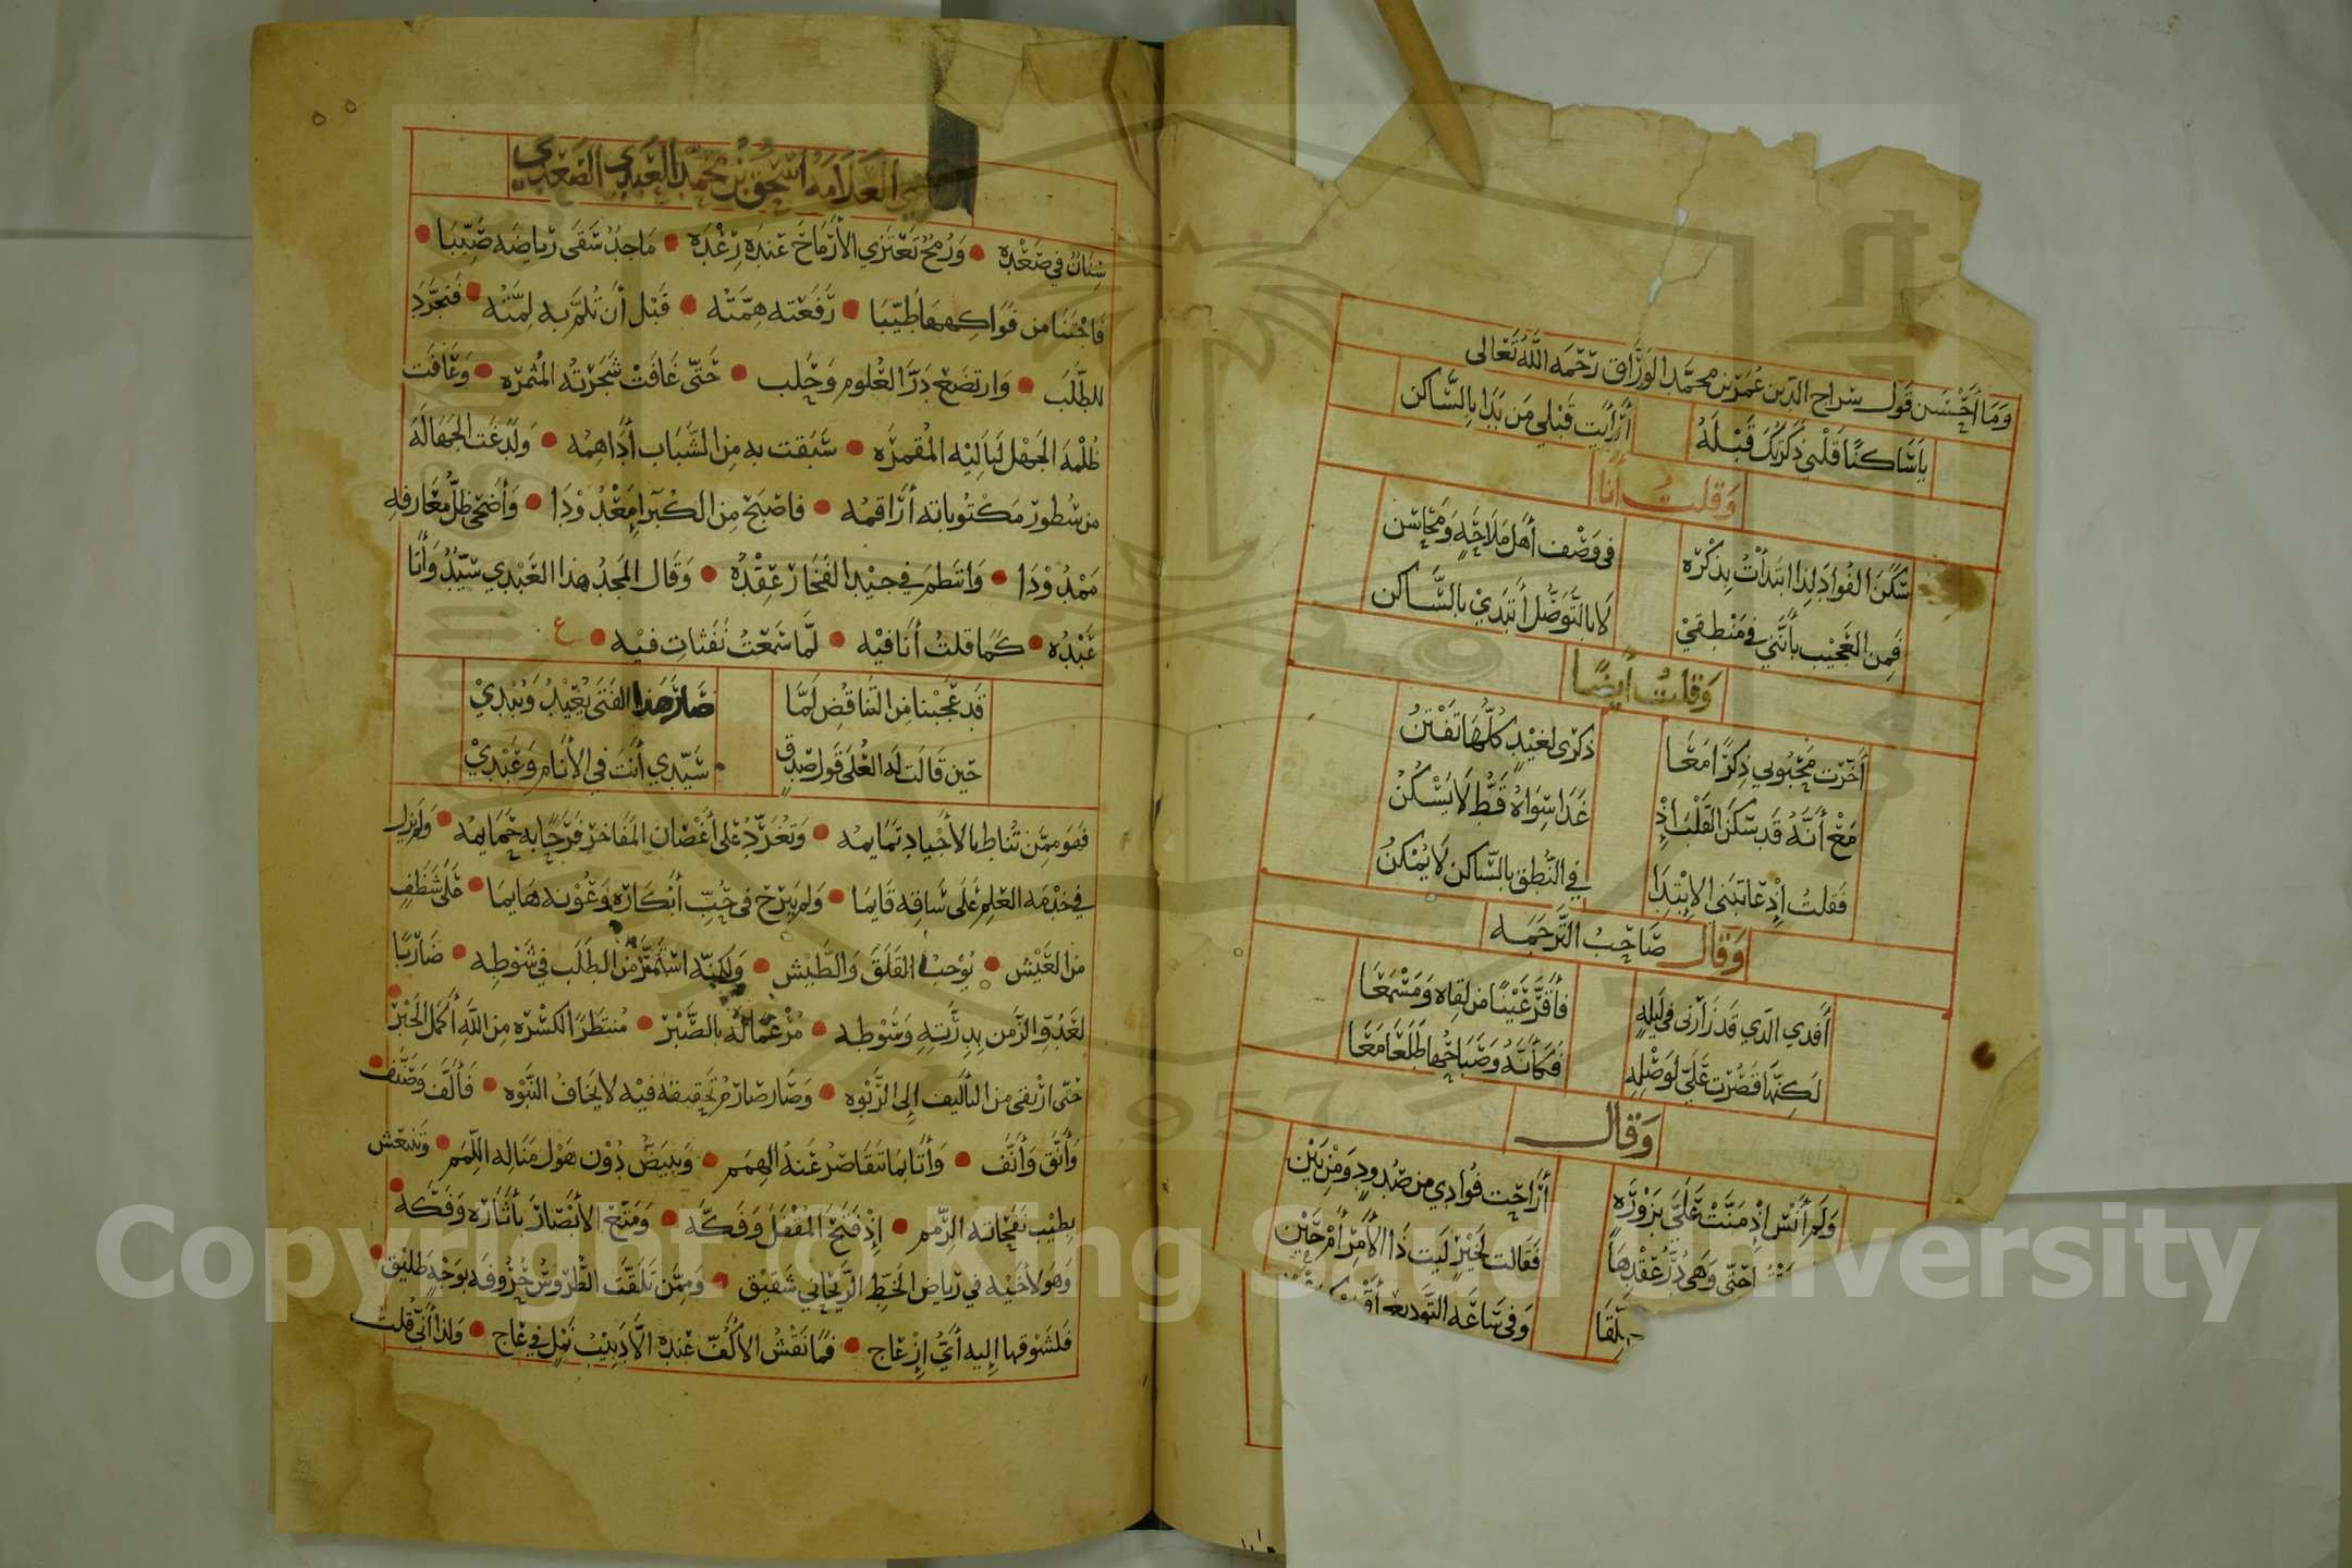 وَمَا أَحْسَن قَول سراج الدين عُمَر بن محمَّد الوَرَّاق رَحْمَه اللَّه تَعَالى
يَا سَاكنًا قَلْبي ذكَرتُكَ قَبْلَهُ أَرَأَيتَ قَبْلي مَن بَدَا بالسَّاكن
وَقلتُ أنَا
سَكَنَ الفُوادَ لِذا ابتَدأتُ بِذكْرَه في وَصْف أهل مَلَاحَةٍ وَمَحَاسن
فَمِن العَجيْب بأنَّني في مَنطِقيْ لَا بالتَّوَصُّل أبتَديْ بالسَّاكن
وَقلتُ أيضًا
أخَّرت مَحْبُوبي ذِكرًا مَعَا ذكرَى لغيْدٍ كلُّهَا تَفْتنُ
مَعْ أنَّهُ قَد سَكنَ القَلْبَ إذْ غَدَا سِوَاهُ قَطُّ لَا يَسْكُنُ
فَقلتُ إذ عَاتبَني الابْتِدَا في النُّطق بالسَّاكن لَا يُمْكنُ
وَقَال صَاحبُ التَّرجَمَه
أفدي الَّذي قَد زَارَني في لَيلةٍ فأقرَّ عَيْنًا من لقاه وَمَسْمَعَا
لَكِنَّهَا قَصُرَت عَلَيَّ لوَصْلِهِ فَكأنَّهُ وَصَبَاحُهَا طَلَعَا مَعَا
وَقال
وَلَم أنْسَ إذ مَنَّتْ عَلَيَّ بزَوْرَه أرَاحَت فُوَادي من صُدودٍ وَمِن بَيْن
حتّى وَهى دُرُّ عَقْدِهَا فَقَالت لخَيْرٍ لَيت ذَا الأمرَ أمرَحَيْن
لِّقَا وَفي سَاعَة التَّوديع
العَلَّامَهُ اسْحَق بْنُ محَمَّد العَبْدي الصَّعْدي
سِنَان في صَعْدِه • وَرُمحٌ تَعْتَزي الأرْمَاح عندَه رِعْدَه • مَاجدٌ سَقَى رياضَه صَيّبَا •
فَاجْتنَا من فَوَاكِههَا طَيّبَا • رَفَعَته هِمَّتُه • قَبْل أن تُلمَّ به لِمَّتُه • فَتجَرَّدَ
للطَّلَب • وَارتضَع دَرَّ العُلوم وَحَلب • حَتّى غَافَتْ شَجَرَتُه المُثْمرَه • وَعَافَت
ظُلْمَة الجَهْل لَيَاليْه المُقمرَه • سَبَقت به من الشَّبَاب أدَاهمُه • وَلَدَغَت الجَهَالَة
من سُطور مَكْتُوباته أرَاقمُه • فاصْبَحَ مِن الكُبَرا مَعْدُودَا • وَأضْحَى ظلّ مَعَارفه
مَمْدُودَا • وَانتَظمَ في جيْد الفَخَار عِقْدُه • وَقَال المَجدُ هذا العَبْدي سَيّدٌ وَأنَا
عَبْدُه • كمَا قلتُ أنَا فيْه • لمَّا سَمَعْتُ نَفَثات فيْه • ع
قد عَجبْنا من التنَاقُض لَمَّا صَارَ هَذا الفَتَى يُعيْدُ وَيُبْديْ
حين قَالَت له العُلَى قَولَ صِدقٍ سَيّدي أنتَ في الأنَام وَعَبْديْ
فَهوَ ممّن تُنَاط بالأجْيَاد تَمَايمُه • وَتغَرّدُ عَلى أغْصَان المَفَاخر فَرَحًا به حَمَايمُه • وَلم يزل
في خدْمَه العَلم عَلَى سَاقه قَايمَا • وَلم يَبْرَح في حُبّ أبْكَارِه وَعُوْنه هَايمَا • عَلَى شَظَفٍ
من العَيْش • يُوْجبُ القَلَقَ وَالطَّيْش • وَلَكِنّه اسْتَمَرَّ منَ الطلَب في شَوْطِه • ضَاربًا
لعَدُوّ الزَّمن بدِرَّتِهِ وَسَوْطِه • مُرغمًا لَهُ بالصَّبْر • مُنتَظرًا لكسْرَه مِن اللَّهِ أكمَلَ الجَبْر •
حَتى ارْتقى من التأليف إلى الرَّبْوَه • وَصَار صَارمُ تحقيقه فيْه لا يَخَافُ النَّبْوَه • فَألَّف وَصَنَّف •
وَأنَّقَ وَأنَّف • وَأتَا بمَا تتقَاصَرُ عَنهُ الهِمَم • وَيبيضُّ دُوْن هَوْل مَنَاله اللِّمَم • وَتنتعش
بطِيْب نَفَحَاته الرّمَم • إذ فَتحَ المُقْفَل وَفَكَّهُ • وَمَتَّعَ الأبْصَارَ بأثَارِه وَفَكَّهَ •
وَهوَ لأخيْه في رياض الخَطّ الرَّيْحَاني شَقيْق • وَممَّن تَلَقَّت الطُّرُوسُ حُرُوفه بوَجْهٍ طَليْق •
فَلشَوْقهَا إليه أيُّ إزْعَاج • فمَا نَقْشُ الأكُفّ عندَه إلَّا دَبيْبُ نَمْلٍ في عَاج • وَلذا أنّي قلتُ